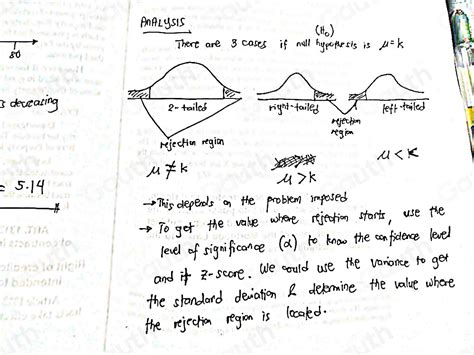 ANALYSIS
There are 3 cases if null hypothesis is μ=k
(H₀)
50
2-tailed
right-tailed
left-tailed
rejection region
rejection
region
s decreasing
μ ≠ k
μ > k
μ < k
= 5.14
→ This depends on the problem imposed
→ To get the value where rejection starts, use the
level of significance (α) to know the confidence level
and z-score. We could use the variance to get
the standard deviation & determine the value where
the rejection region is located.